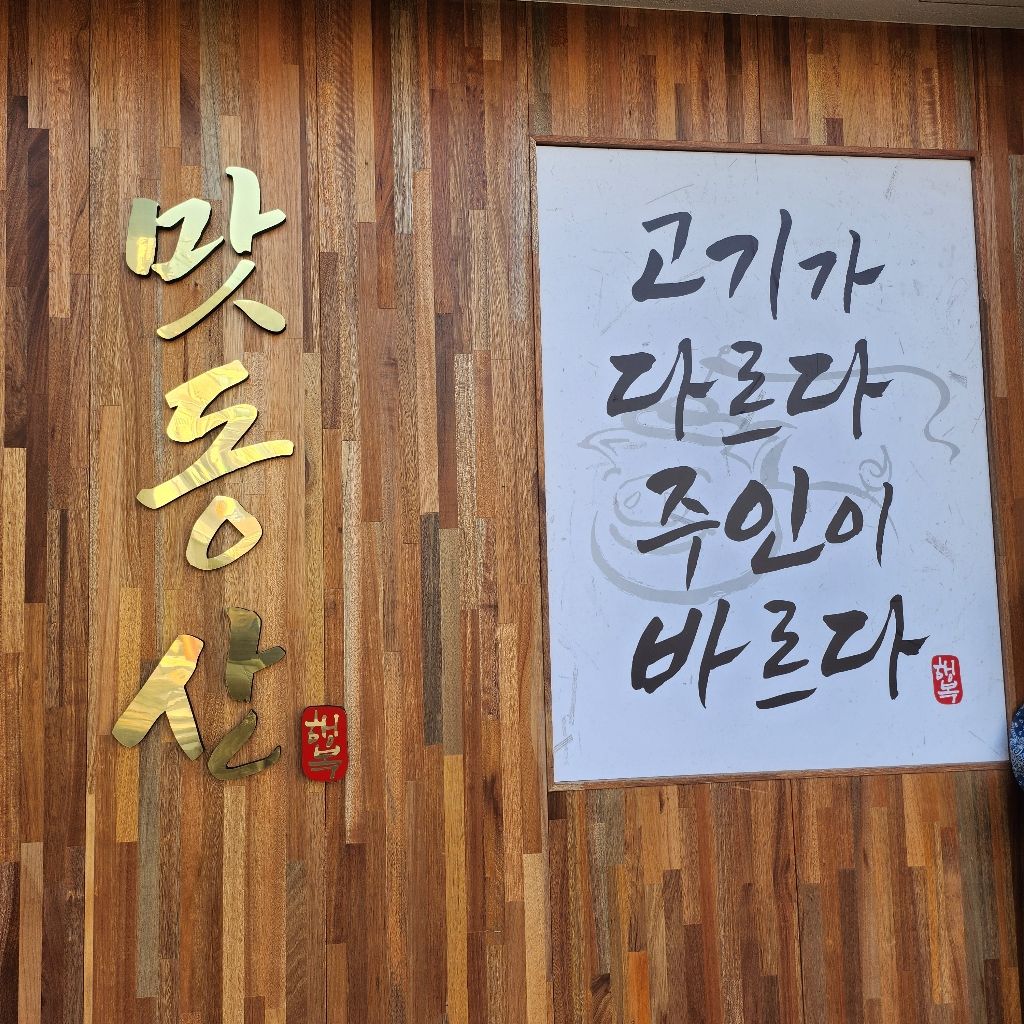 맛동산
행복
고기가
다르다
주인이
바르다
행복